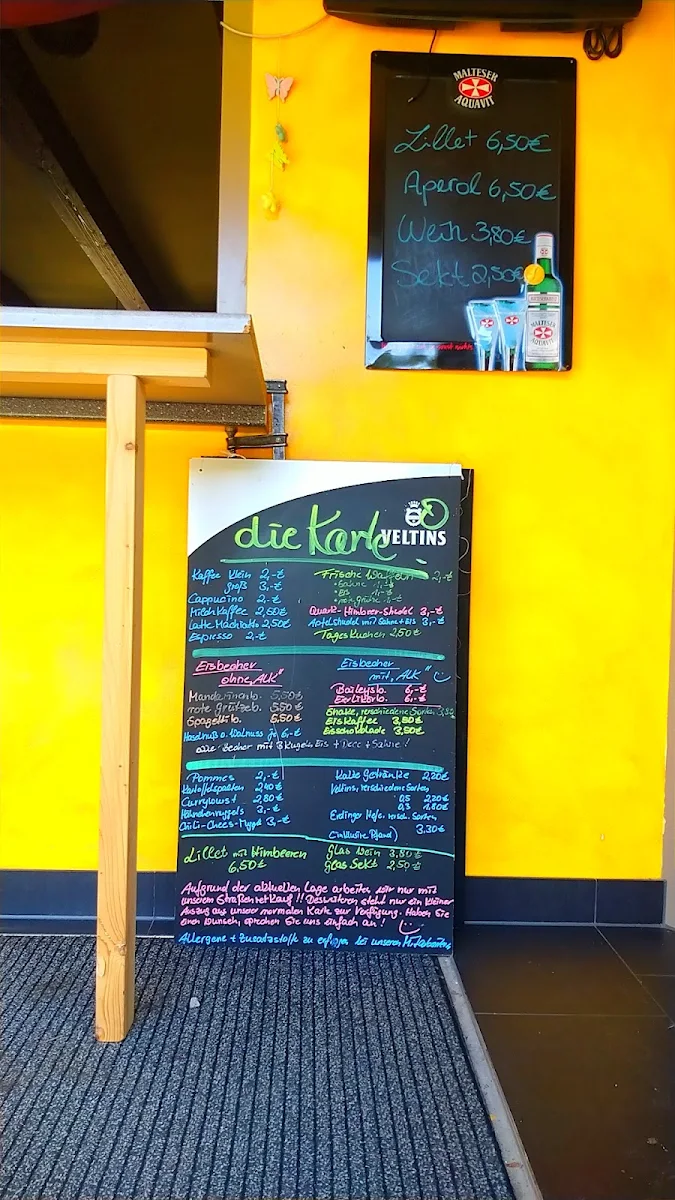 MALTESER
AQUAVIT
Lillet 6,50€
Aperol 6,50€
Wein 3,80€
Sekt 2,50€
MALTESER
AQUAVIT
die Karte
VELTINS
Kaffee klein 2,-€
groß 3,-€
Cappucino 2,-€
Milchkaffee 2,50€
Latte Machiatto 2,50€
Espresso 2,-€
Frische Waffeln 2,-€
Quark-Himbeer-Strudel 3,-€
Apfelstrudel mit Sahne + Eis 3,-€
Tageskuchen 2,50€
Eisbecher
ohne "ALK"
Mandarinenb. 5,50€
rote Grützeb. 5,50€
Spagettib. 5,50€
Haselnuß o. Walnuss 6,-€
Eisbecher
mit "ALK"
Baileysb. 6,-€
Eierlikörb. 6,-€
Shake, verschiedene Sorten
Eiskaffee 3,50€
Eisschokolade 3,50€
alle Becher mit 3 Kugeln Eis + Deco + Sahne!
Pommes 2,-€
Kartoffelspalten 2,40€
Currywurst 2,80€
Hähnchennuggets 3,-€
Chili-Chees-Nugget 3,-€
Kalte Getränke 2,20€
Veltins, verschiedene Sorten
0,5 2,20€
0,3 1,80€
Erdinger Hefe, versch. Sorten
3,30€
(inklusive Pfand)
Lillet mit Himbeeren
6,50€
Glas Wein 3,80€
Glas Sekt 2,50€
Aufgrund der aktuellen Lage arbeiten wir nur mit
unserem Straßenverkauf!! Desweiteren steht nur ein kleiner
Auszug aus unserer normalen Karte zur Verfügung. Haben Sie
einen Wunsch, sprechen Sie uns einfach an!
Allergene + Zusatzstoffe zu erfragen bei unseren Mitarbeitern